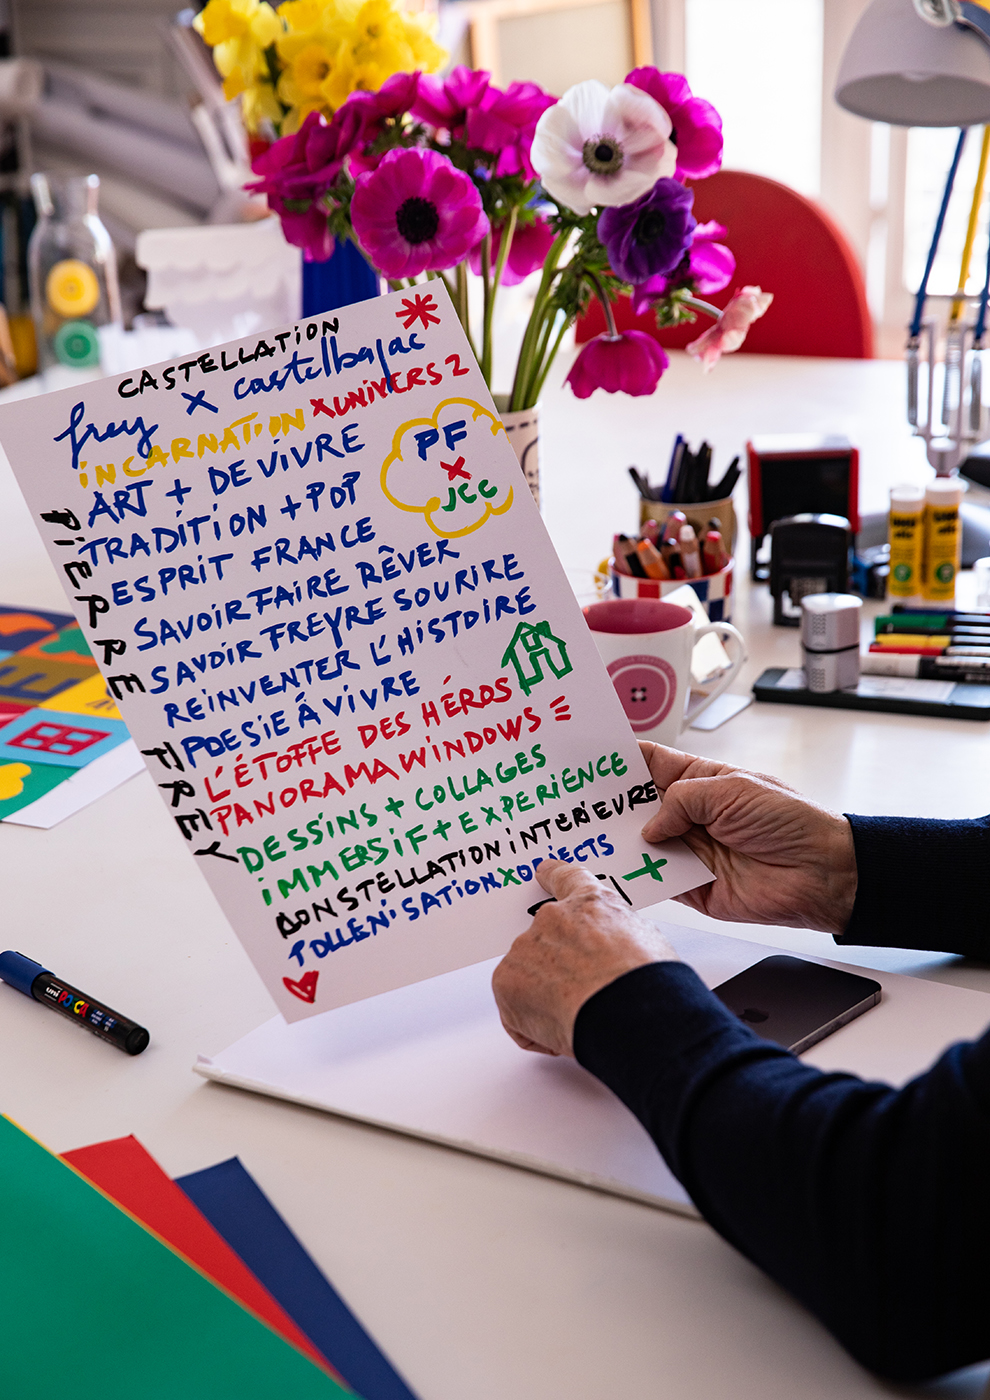 CASTELLATION
frey x castelbajac
iNCARNATiON XUNiVERS 2
ART + DE ViVRE
TRADiTiON + POP
ESPRiT FRANCE
SAVOiR FAiRE RÊVER
SAVOiR FREYRE SOURiRE
REiNVENTER L'HiSTOiRE
POESiE À ViVRE
L'ÉTOFFE DES HÉROS
PANORAMA WiNDOWS
DESSiNS + COLLAGES
iMMERSiF + EXPERiENCE
CONSTELLATION iNTERiEURE
POLLENiSATiON X OBJECTS
PF
X
JCC
PiERRE FREY
uni POSCA
UHU
UHU